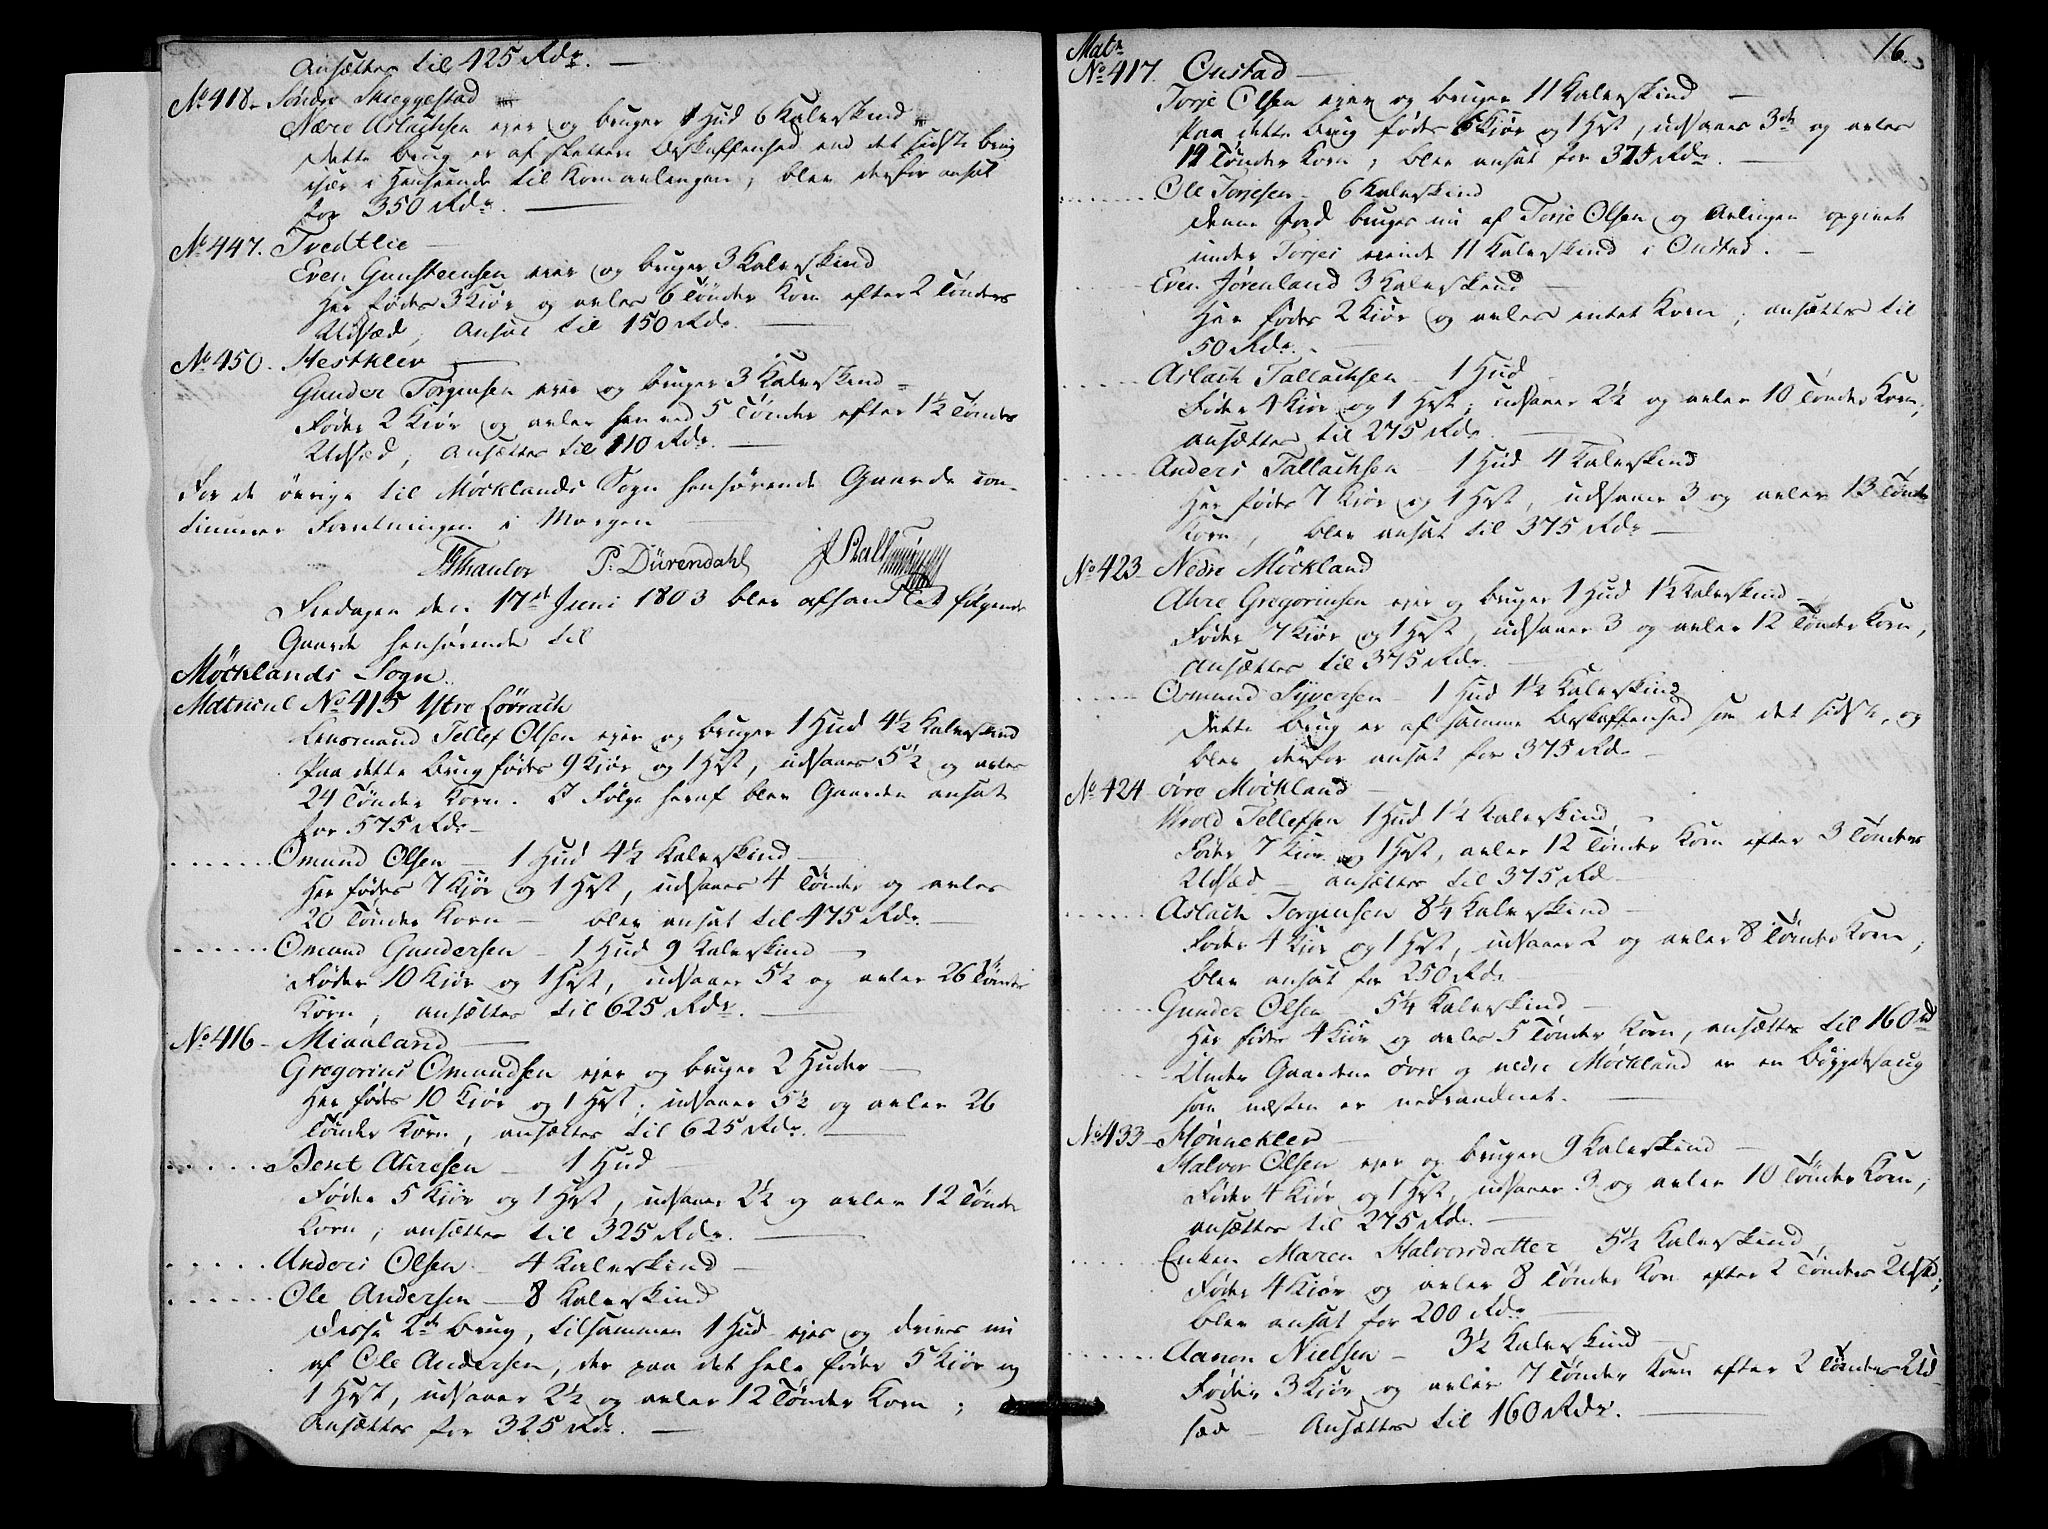 Ansættes til 425 Rdr. —
No 418 - Søndre Skreggestad
Nære Aslachsen ejer og bruger 1 Hud 6 Kalvskind
Dette brug er af slettere Beskaffenhed end det sidste brug
især i Henseende til Kornavlingen, blev derfor ansat
for 350 Rdr. —
No 447. Tvedtlie —
Even Gunsteensen ejer og bruger 3 Kalvskind
Her fødes 3 Kiør og avles 6 Tønder Korn efter 2 Tønders
Udsæd, Ansat til 150 Rdr. —
No 450 - Hestklev —
Gunder Torgensen ejer og bruger 3 Kalvskind
Føder 2 Kiør og avler hen ved 5 Tønder efter 1½ Tøndes
Udsæd, Ansættes til 110 Rdr. —
For de øvrige til Møcklands Sogn henhørende Gaarde con-
tinuerer Forretningen i Morgen —
P. Dürendahl
Fredagen den 17de Juni 1803 blev afhandlet følgende
Gaarde henhørende til
Møcklands Sogn.
Matricul No 415 Ystre Løvrach
Lensmand Tellef Olsen ejer og bruger 1 Hud 4½ Kalvskind
Paa dette Brug fødes 9 Kiør og 1 Hest, udsaaes 5½ og avles
24 Tønder Korn. I Følge heraf blev Gaarden ansat
for 575 Rdr —
Omund Olsen — 1 Hud 4½ Kalvskind —
Her fødes 7 Kiør og 1 Hest, udsaaes 4 Tønder og avles
20 Tønder Korn — blev ansat til 475 Rdr. —
Omund Gundersen — 1 Hud 9 Kalvskind —
Føder 10 Kiør og 1 Hest, udsaaer 5½ og avler 26 Tønder
Korn, ansættes til 625 Rdr. —
No 416 - Mianland —
Gregorius Omundsen ejer og bruger 2 Huder —
Her fødes 10 Kiør og 1 Hest, udsaaer 5½ og avler 26
Tønder Korn, ansættes til 625 Rdr. —
Bent Ahresen — 1 Hud —
Føder 5 Kiør og 1 Hest, udsaaer 2½ og avler 12 Tønder
Korn, ansættes til 325 Rdr. —
Anders Olsen — 4 Kalvskind —
Ole Andersen — 8 Kalvskind
Disse 2de Brug, tilsammen 1 Hud ejes og drives nu
af Ole Andersen, der paa det hele føder 5 Kiør og
1 Hest, udsaaer 2½ og avler 12 Tønder Korn;
Ansættes for 325 Rdr. —
16.
Matr
No 417. Onstad —
Torje Olsen ejer og bruger 11 Kalvskind —
Paa dette brug fødes 6 Kiør og 1 Hest, udsaaes 3de og avles
14 Tønder Korn, blev ansat for 375 Rdr. —
Ole Torjesen — 6 Kalvskind
Denne Jord bruges nu af Torje Olsen og Avlingen opgivet
under Torjes ejende 11 Kalvskind i Onstad. —
Even Jørenland 3 Kalvskind —
Her fødes 2 Kiør og avles intet Korn, ansættes til
50 Rdr. —
Aslach Tallachsen — 1 Hud —
Føder 4 Kiør og 1 Hest, udsaaer 2½ og avler 10 Tønder Korn,
ansættes til 275 Rdr —
Anders Tallachsen 1 Hud 4 Kalvskind
Her fødes 7 Kiør og 1 Hest, udsaaer 3 og avler 13 Tønder
Korn, blev ansat til 375 Rdr —
No 423 - Nedre Møckland
Ahre Gregoriusen ejer og bruger 1 Hud 1½ Kalvskind
Føder 7 Kiør og 1 Hest, udsaaer 3 og avler 12 Tønder Korn,
ansættes til 375 Rdr. —
Osmund Syversen — 1 Hud 1½ Kalvskind
Dette Brug er af samme Beskaffenhed som det sidste, og
blev derfor ansat for 375 Rdr —
No 424 - Øvre Møckland —
Wrold Tellefsen 1 Hud 1½ Kalvskind
Føder 7 Kiør og 1 Hest, avler 12 Tønder Korn efter 3 Tønders
Udsæd — ansættes til 375 Rd —
Aslach Torgensen 8¼ Kalvskind —
Føder 4 Kiør og 1 Hest, udsaaer 2 og avler 8 Tønder Korn,
blev ansat for 250 Rdr —
Gunder Olsen — 5¼ Kalvskind —
Her fødes 4 Kiør og avles 5 Tønder Korn, ansættes til 160 rd
Under Gaardene Øvre og nedre Møckland er en Bøygdesaug
som næsten er nedraadnet. —
No 433 - Hønneklev —
Halvor Olsen ejer og bruger 9 Kalvskind —
Føder 4 Kiør og 1 Hest, udsaaer 3 og avler 10 Tønder Korn,
ansættes til 275 Rdr. —
Enken Maren Halvorsdatter 5½ Kalvskind,
Føder 4 Kiør og avler 8 Tønder Korn efter 2 Tønders Udsæd;
blev ansat for 200 Rdr —
Aanon Nielsen — 3½ Kalvskind —
Føder 3 Kiør og avler 7 Tønder Korn efter 2 Tønders Ud-
sæd — Ansættes til 160 Rdr. —